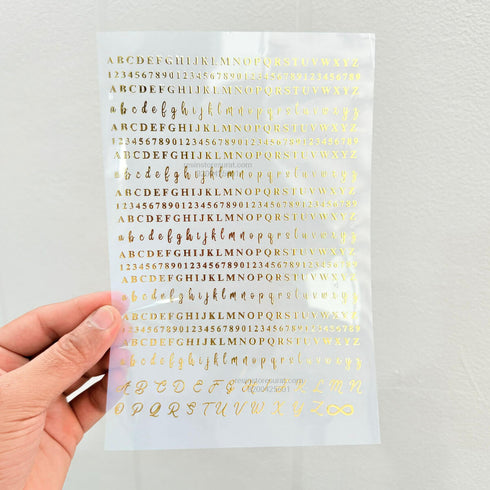 ABCDEFGHIJKLMNOPQRSTUVWXYZ
123456789012345678901234567890
ABCDEFGHIJKLMNOPQRSTUVWXYZ
abcdefghijklmnopqrstuvwxyz
ABCDEFGHIJKLMNOPQRSTUVWXYZ
123456789012345678901234567890
ABCDEFGHIJKLMNOPQRSTUVWXYZ
resinstoresurat.com
abcdefghijklmnopqrstuvwxyz
ABCDEFGHIJKLMNOPQRSTUVWXYZ
123456789012345678901234567890
ABCDEFGHIJKLMNOPQRSTUVWXYZ
abcdefghijklmnopqrstuvwxyz
ABCDEFGHIJKLMNOPQRSTUVWXYZ
123456789012345678901234567890
ABCDEFGHIJKLMNOPQRSTUVWXYZ
abcdefghijklmnopqrstuvwxyz
ABCDEFGHIJKLMNOPQRSTUVWXYZ
123456789012345678901234567890
ABCDEFGHIJKLMNOPQRSTUVWXYZ
abcdefghijklmnopqrstuvwxyz
resinstoresurat.com
ABCDEFGHIJKLMN
OPQRSTUVWXYZ∞